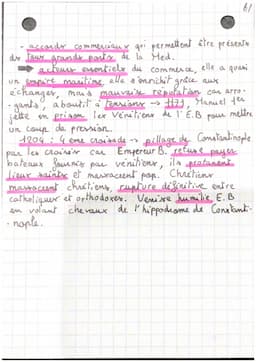 6/
- accords commerciaux qui permettent être présents
ds leur grands ports de la Med.
acteurs essentiels du commerce, elle a quasi
un empire maritime elle s'enrichit grâce aux
échanges mais mauvaise réputation car arro-
gants, a aboutit à tensions → 1171, Manuel 1er
jette en prison les Vénitiens de l'E.B pour mettre
un coup de pression.
1204 : 4eme croisade → pillage de Constantinople
par les croisés car Empereur B. refuse payer
bateaux fournis par vénitiens, ils profanent
lieux saints et massacrent pop. Chrétiens
massacrent chrétiens, rupture définitive entre
catholiques et orthodoxes. Venise humilie E.B
en volant chevaux de l'hippodrome de Constanti-
- nople.